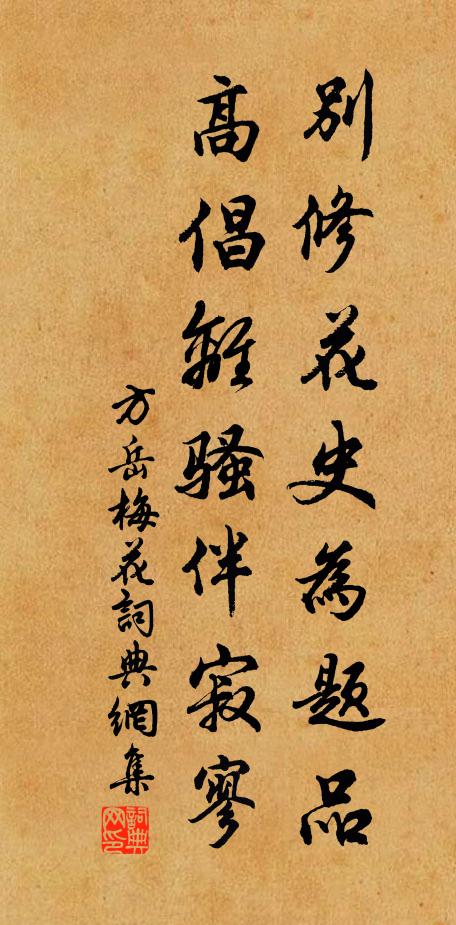 別修花史為題品
高倡離騷伴寂寥
方岳梅花詞典網集
詞典网印